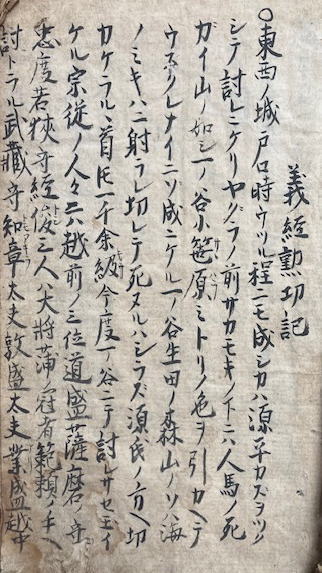 義經勲功記
○東西ノ城戸口時ウツル程ニモ成シカハ源平カズヲツク
シテ討レニケリヤグラノ前サカモキノ下ニハ人馬ノ死
ガイ山ノ如シ一ノ谷小篠原ミトリノ色ヲ引カヘテ
ウスクレナイニソ成ニケル一ノ谷生田ノ森山ノソハ海
ノミキハニ射ラレ切レテ死ヌルハシラズ源氏ノ方ヘ切
カケラルヽ首圧一千余級今度一ノ谷ニテ討レサセ玉イ
ケル宗従ノ人々ニハ越前ノ三位道盛薩磨ノ守
忠度若狹守経俊三人ハ大将蒲ノ冠者範頼ノ手ヘ
討トラル武藏守知章太夫敦盛太夫業盛越中